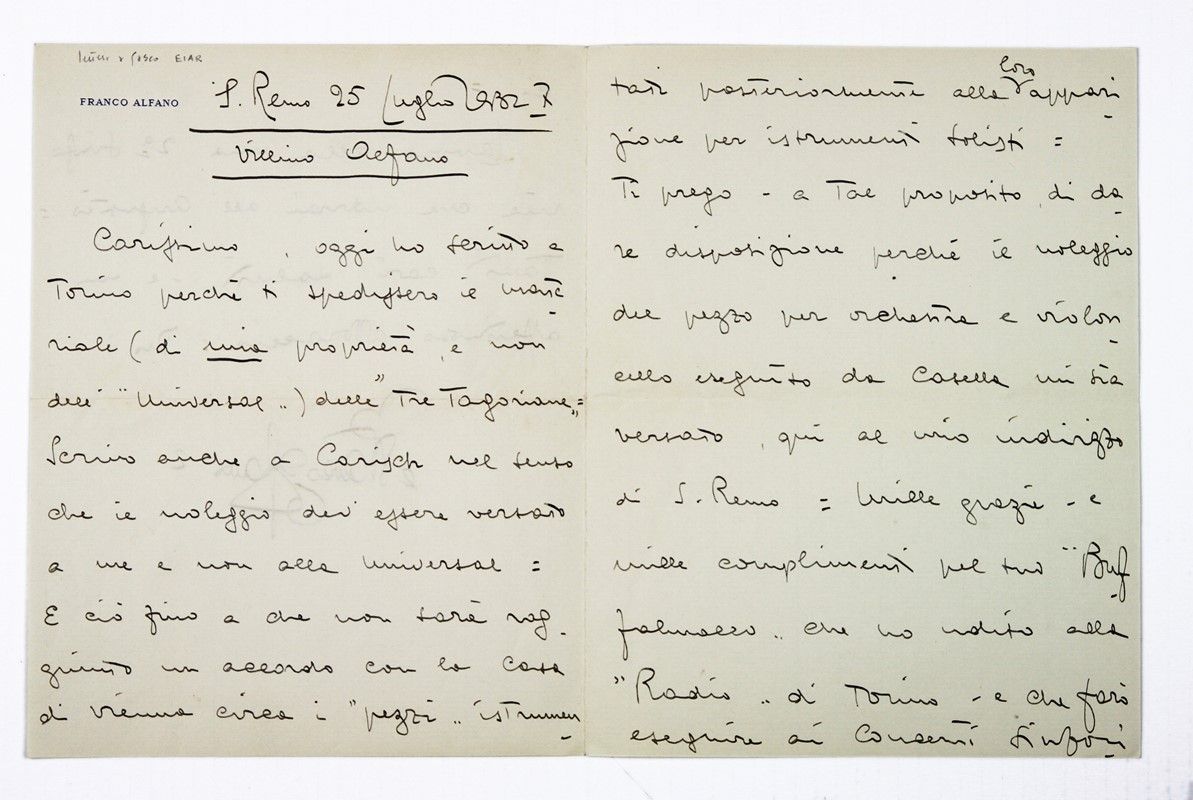 EIAR
FRANCO ALFANO
S. Remo 25 Luglio 1932 X
Villino Alfano
Carissimo, oggi ho scritto a
Torino perchè ti spedissero il mate
riale (di mia proprietà, e non
dell' "Universal..) delle "Tre Tagoriane„ =
Scrivo anche a Carisch nel senso
che il noleggio dev' essere versato
a me e non alla Universal =
E ciò fino a che non sarà rag-
giunto un accordo con la Casa
di Vienna circa i "pezzi.. istrumen
tati posteriormente alla loro appari
zione per istrumenti solisti =
Ti prego - a tal proposito, di da
re disposizione perché il noleggio
del pezzo per orchestra e violon
cello eseguito da Casella mi sia
versato, qui al mio indirizzo
di S. Remo = Mille grazie - e
mille complimenti pel tuo "Buf
falmacco.. che ho udito alla
"Radio.. di Torino - e che farò
eseguire ai Concerti Sinfoni